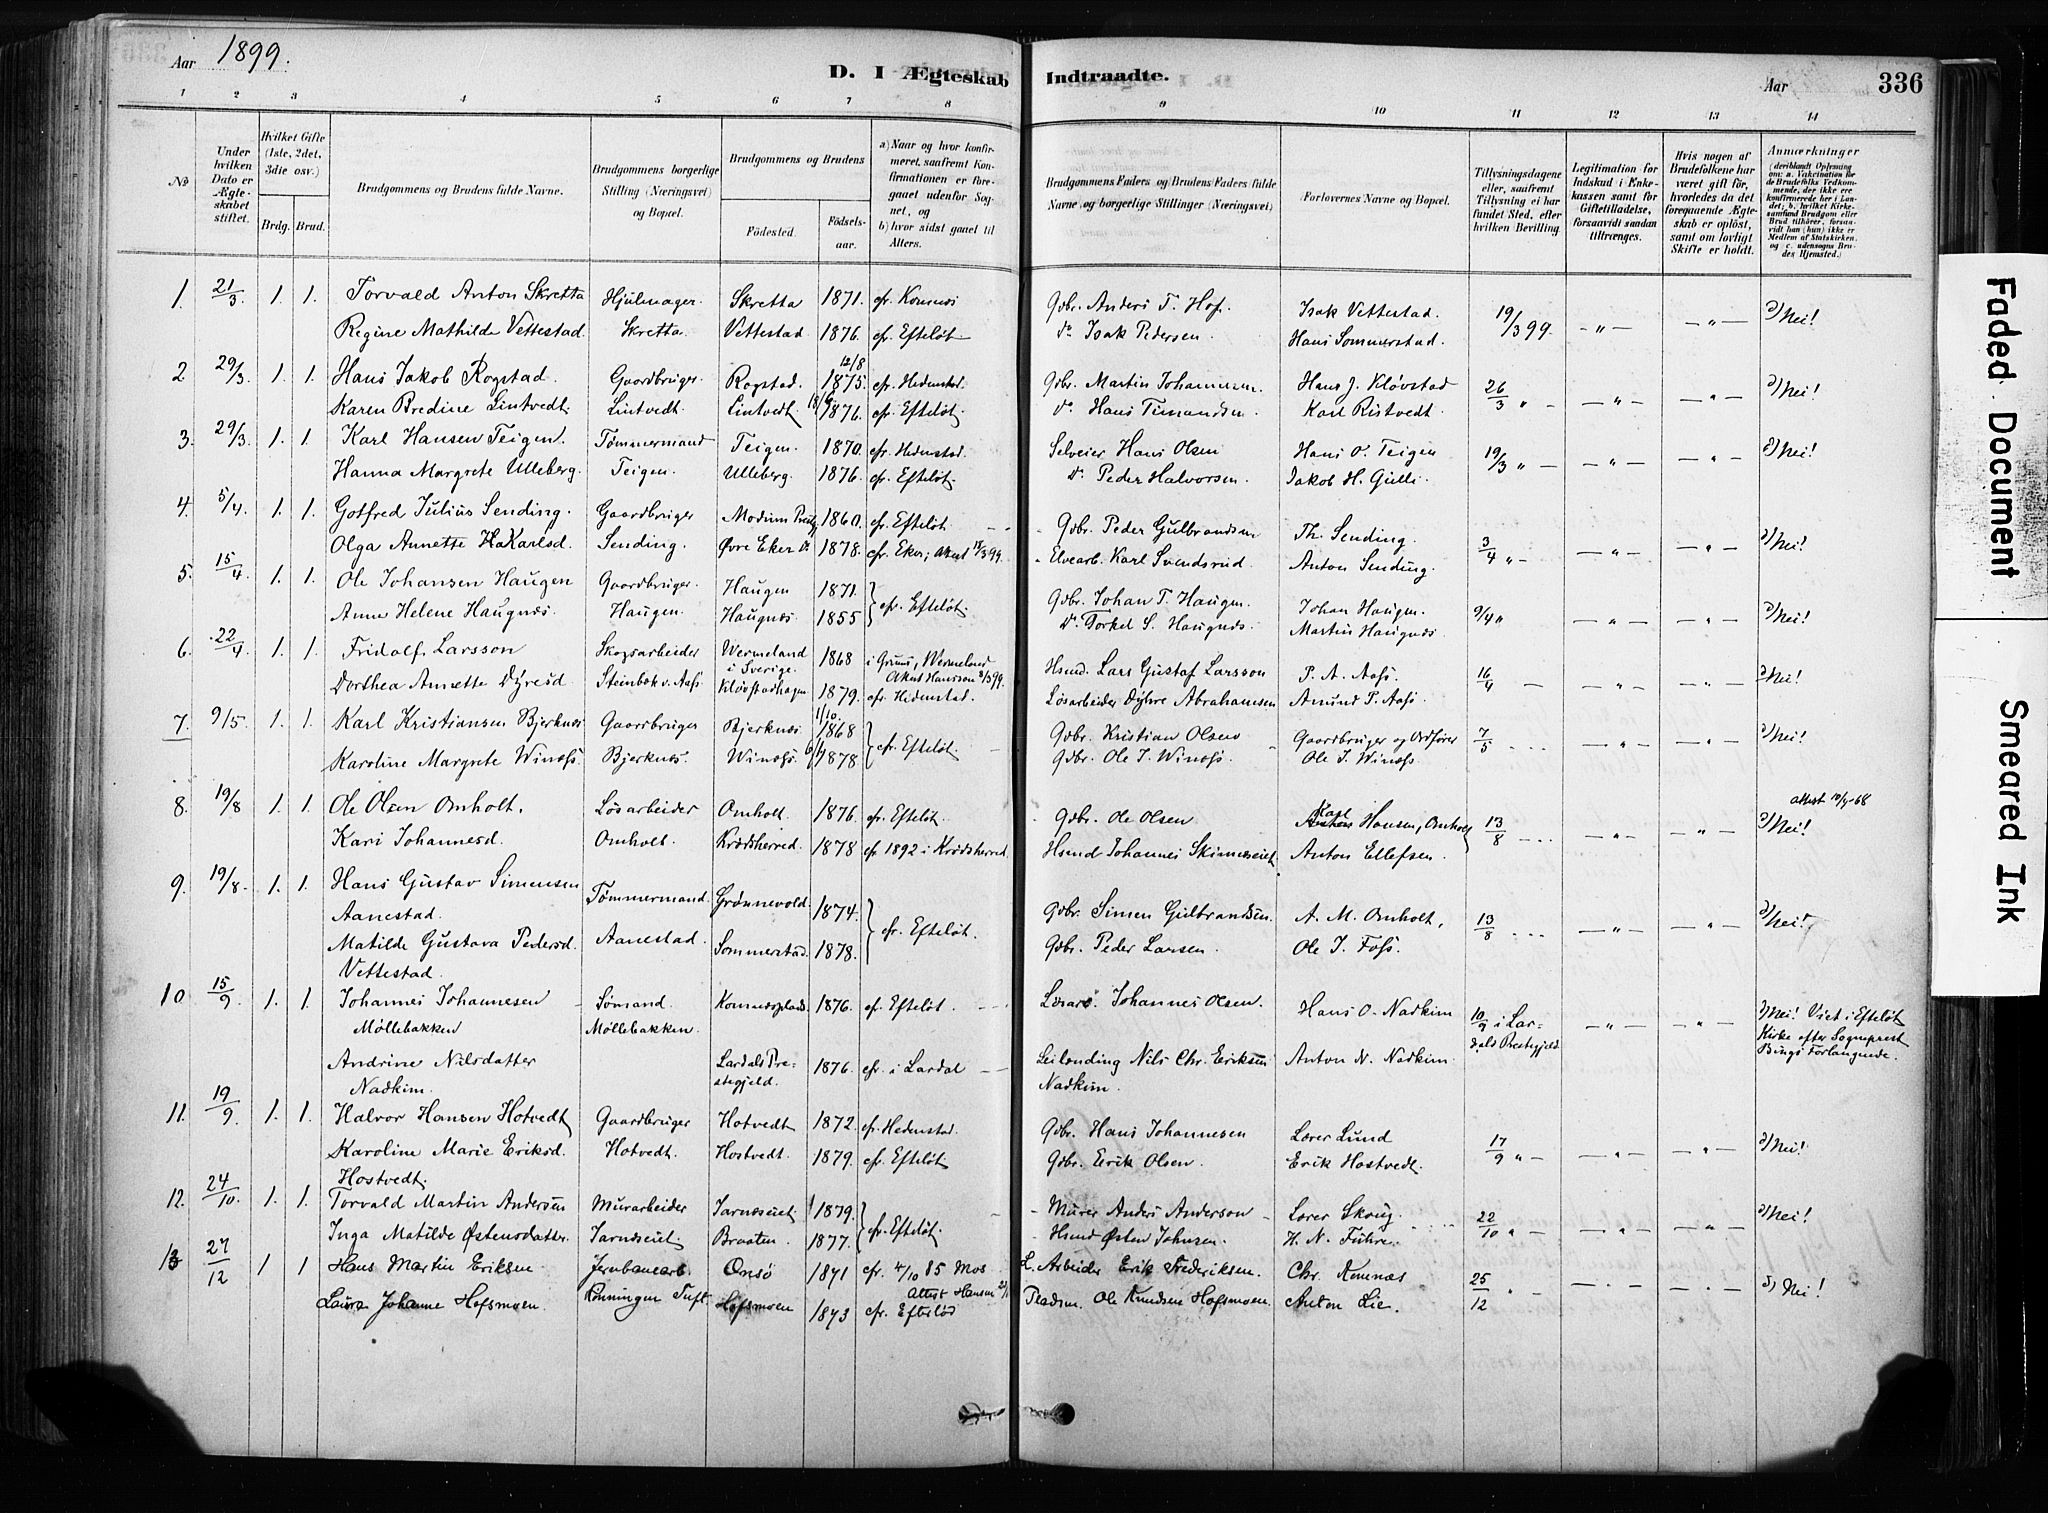 Aar 1899.
D. I Ægteskab Indtraadte.
Aar 336
1 2 3 4 5 6 7 8 9 10 11 12 13 14
No
Under hvilken Dato er Ægteskabet stiftet.
Hvilket Gifte (1ste, 2det, 3die osv.)
Brdg. Brud.
Brudgommens og Brudens fulde Navne.
Brudgommens borgerlige Stilling (Næringsvei) og Bopæl.
Brudgommens og Brudens
Fødested. Fødselsaar.
a) Naar og hvor konfirmeret, saafremt Konfirmationen er foregaaet udenfor Sognet, og b) hvor sidst gaaet til Alters.
Brudgommens Faders og Brudens Faders fulde Navne og borgerlige Stillinger (Næringsvei)
(Forlovernes Navne og Bopæl.
Tillysningsdagene eller, saafremt Tillysning ei har fundet Sted, efter hvilken Bevilling
Legitimation for Indskud i Enkekassen samt for Giftetilladelse, forsaavidt saadan tiltrænges.
Hvis nogen af Brudefolkene har været gift før, hvorledes da det foregaaende Ægteskab er opløst, samt om lovligt Skifte er holdt.
Anmærkninger
(deriblandt Oplysning om: a. Vakcination for de Brudefolks Vedkommende, der ikke ere konfirmerede her i Landet; b. hvilket Kirkesamfund Brudgom eller Brud tilhører, forsaavidt han (hun) ikke er Medlem af Statskirken, og c. udensogns Brudes Hjemsted.)
1. 21/3 1. 1. Torvald Anton Skretta Hjulmager. Skretta 1871. cfr. Komnes Gdbr. Anders T. Hof. Isak Vettestad. 19/3 99. —"— —"— a) Nei!
Regine Mathilde Vettestad Skretta. Vettestad 1876. cfr. Efteløt Do Isak Pedersen. Hans Sommerstad.
2 29/3. 1. 1. Hans Jakob Rogstad. Gaardbruger. Rogstad. 12/8 1875. cfr. Hedenstad. Gdbr. Martin Johannesen. Hans J. Kløvstad 26/3 " —"— —"— a) Nei!
Karen Bredine Lintvedt. Lintvedt. Lintvedt 1876. cfr. Efteløt. Do Hans Timandsen. Karl Ristvedt.
3. 29/3. 1. 1. Karl Hansen Teigen. Tømmermand Teigen. 1870. cfr. Hedenstad. Selveier Hans Olsen Hans O. Teigen 19/3 " —"— —"— a) Nei!
Hanna Margrete Ulleberg. Teigen. Ulleberg. 1876. cfr. Efteløt. Do Peder Halvorsen. Jakob H. Gulli.
4. 5/4. 1. 1. Gotfred Julius Sending. Gaardbruger Modum 1860. cfr. Efteløt. Gdbr. Peder Gulbrandsen Th. Sending. 3/4 " —"— —"— a) Nei!
Olga Annette Karlsd. Sending. Øvre Eker Do 1878. cfr. Eker; 99. Elvearb. Karl Svendsrud. Anton Sending.
5. 15/4. 1. 1. Ole Johansen Haugen Gaardbruger. Haugen 1871. cfr. Efteløt. Gdbr. Johan T. Haugen. Johan Haugen. 9/4 " —"— —"— a) Nei!
Anne Helene Haugnæs. Haugen. Haugnæs. 1855 Do Torkel S. Haugnæs. Martin Haugnæs.
6. 22/4. 1. 1. Fridolf Larsson Skogsarbeider Wermeland i Sverige. 1868 i Grums, Wermeland Hsmd. Lars Gustaf Larsson P. A. Aafs. 16/4 — —"— —"— a) Nei!
Dorthea Annette Dyresd. Steinbok v. Aafs. Kløvstadhagen 1879. cfr. Hedenstad. Løsarbeider Dyhre Abrahamsen Amund P. Aafs.
7. 9/5. 1. 1. Karl Kristiansen Bjerknæs Gaardbruger Bjerknæs 1/10. 1868 cfr. Efteløt. Gdbr. Kristian Olsen Gaardbruger og Ordfører 7/5 —"— —"— a) Nei!
Karoline Margrete Winæfs. Bjerknæs. Winæfs. 1878 Gdbr. Ole J. Winæfs. Ole J. Winæfs.
8. 19/8 1. 1. Ole Olsen Omholt. Løsarbeider Omholt. 1876. cfr. Efteløt. Gdbr. Ole Olsen Karl Hansen, Omholt 13/8 —"— —"— a) Nei!
Kari Johannesd. Omholt. Krødsherred. 1878 cfr 1892 i Krødsherred Hsmd Johannes Anton Ellefsen.
9. 19/8. 1. 1. Hans Gustav Simensen Tømmermand. Grønnevold. 1874. cfr. Efteløt. Gdbr. Simen Gulbrandsen. A. M. Omholt, 13/8 —"— —"— a) Nei!
Aanestad.
Matilde Gustava Pedersd. Aanestad. Sommerstad. 1878. Gdbr. Peder Larsen. Ole J. Fofs.
Vettestad.
10 15/9. 1. 1. Johannes Johannesen Sømand. Komnæsplads 1876. cfr. Efteløt. Johannes Olsen. Hans O. Nadkim 10/9 i Lardals Prestegjeld. —"— —"— Nei! Viet i Efteløt Kirke efter Sogneprest Bings Forlangende.
Møllebakken Møllebakken.
Andrine Nilsdatter Lardals Prestegjeld. 1876. cfr. i Lardal Leilending Nils Chr. Eriksen Anton N. Nadkim.
Nadkim. Nadkim.
11. 19/9 1. 1. Halvor Hansen Hotvedt Gaardbruger Hotvedt 1872. cfr. Hedenstad. Gdbr. Hans Johannesen Lærer Lund 17/9 " —"— —"— a) Nei!
Karoline Marie Eriksd. Hotvedt. Hostvedt. 1879. cfr. Efteløt Gdbr. Eerik Olsen. Erik Hostvedt.
Hostvedt.
12. 24/10. 1. 1. Torvald Martin Andersen Murarbeider Jarnæseiet. 1879. cfr. Efteløt. Murer Anders Anderson Lærer Skoug. 22/10 " —"— —"— a) Nei!
Inga Matilde Østensdatter. Jarnæseiet. Braaten. 1877. Hsmd Østen Johnsen. H. N. Fuhre.
13 27/12 1 1 Hans Martin Eriksen Jernbanearb. Onsø 1871 cfr. 4/10 85 Mos L. Arbeider Erik Frederiksen. Chr. Komnæs 25/12 —"— —"— a) Nei!
Laura Johanne Hofsmoen. Tuft. Hofsmoen 1873 cfr. Efteløt Pladsm. Ole Knudsen Hofsmoen. Anton Lie.
Faded Document
Smeared Ink